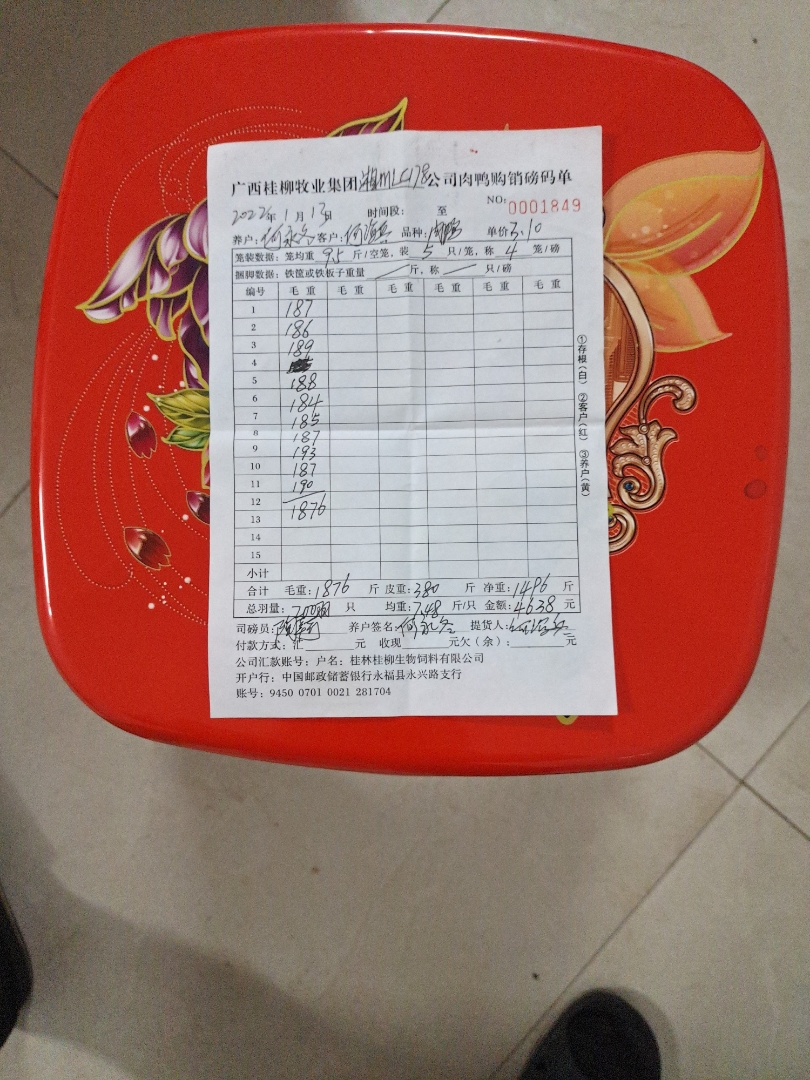 广西桂柳牧业集团湘MLC178公司肉鸭购销磅码单
2022年1月13日 时间段： 至 NO: 0001849
养户：何永冬 客户：何 品种：肉鸭 单价3.10
笼装数据：笼均重 9.5 斤/空笼，装 5 只/笼，称 4 笼/磅
捆脚数据：铁筐或铁板子重量 斤，称 只/磅
编号 毛重 毛重 毛重 毛重 毛重
1 187
2 186
3 189
4
5 188
6 184
7 185
8 187
9 193
10 187
11 190
12
13 1876
14
15
小计
合计 毛重：1876 斤 皮重：380 斤 净重：1496 斤
总羽量：200羽 只 均重：7.48 斤/只 金额：4638 元
司磅员： 养户签名：何永冬 提货人：
付款方式：汇 元 收现 元欠（余）： 元
公司汇款账号：户名：桂林桂柳生物饲料有限公司
开户行：中国邮政储蓄银行永福县永兴路支行
账号：9450 0701 0021 281704
①存根（白） ②客户（红） ③养户（黄）